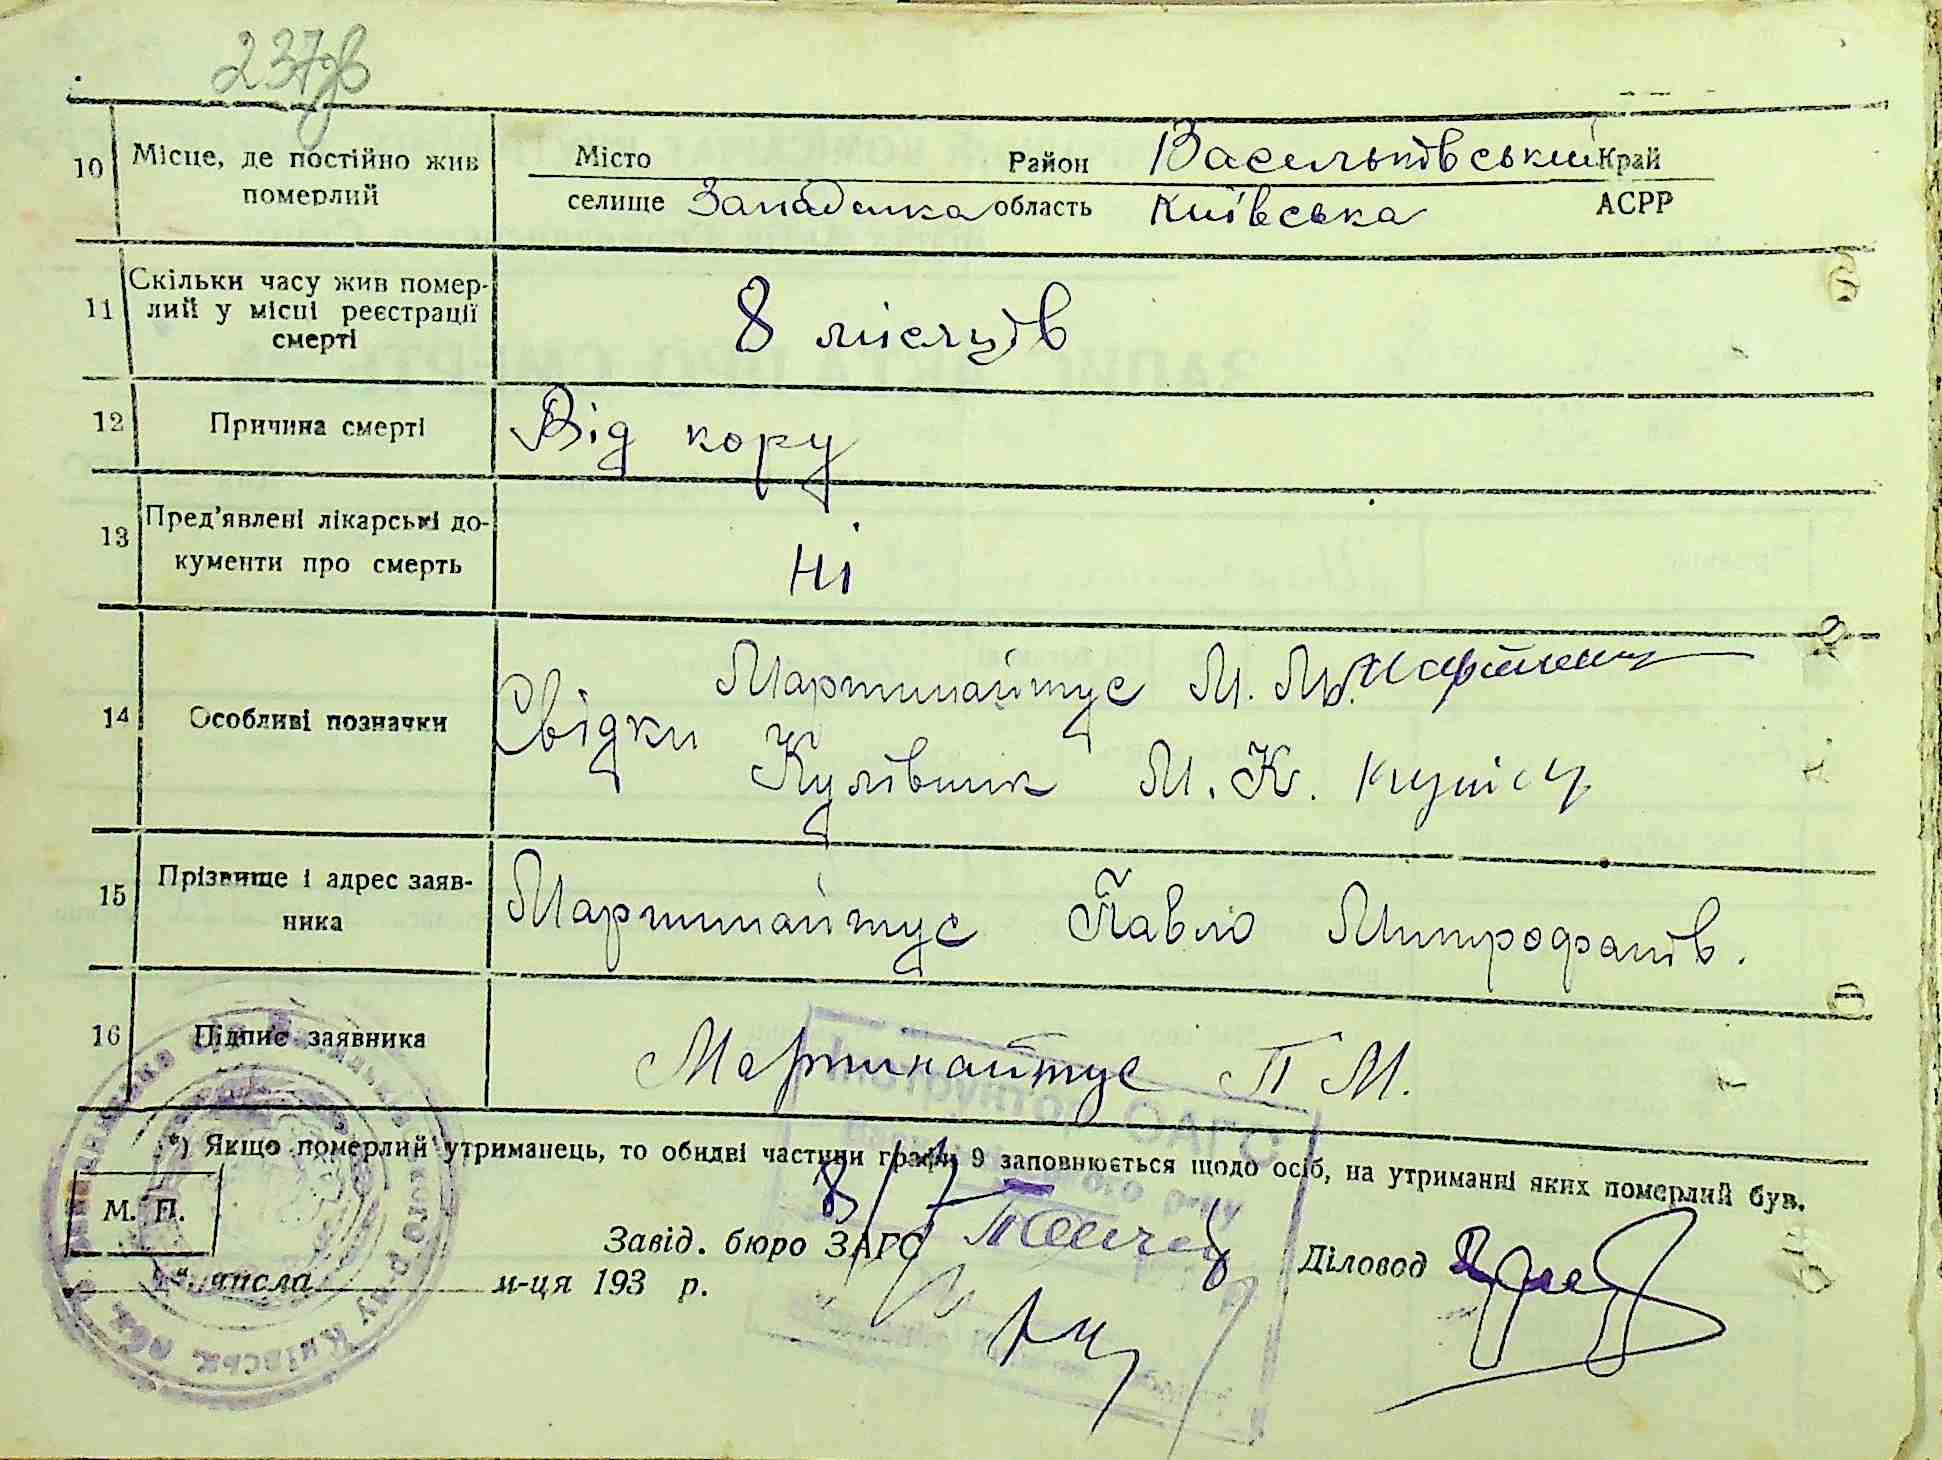 237зв
10 Місце, де постійно жив Місто Район Васильківський Край
померлий селище Западинка область Київська АСРР
11 Скільки часу жив помер-
лий у місці реєстрації
смерті 8 місяців
12 Причина смерті Від кору
13 Пред'явлені лікарські до-
кументи про смерть Ні
14 Особливі позначки Свідки
Мартинайтус М. М.
Кулівник М. К.
15 Прізвище і адрес заяв-
ника Мартинайтус Павло Митрофанів.
16 Підпис заявника Мартинайтус П М.
*) Якщо померлий утриманець, то обидві частини графи 9 заповнюється щодо осіб, на утриманні яких померлий був.
М. П.
Завід. бюро ЗАГС Діловод
числа м-ця 193 р.